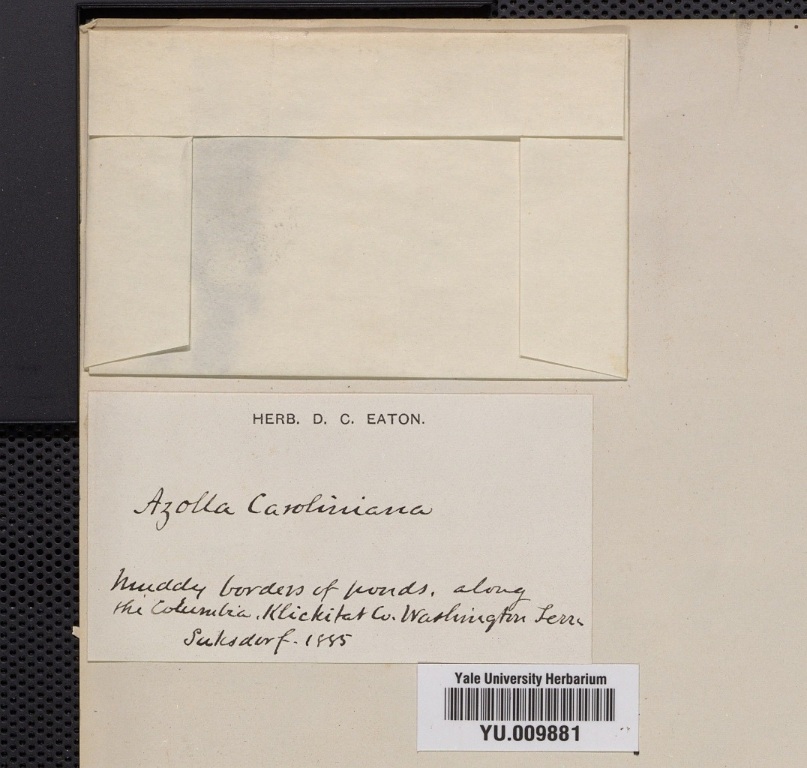 HERB. D. C. EATON.
Azolla Caroliniana
Muddy borders of ponds, along
the Columbia, Klickitat Co. Washington Terr.
Suksdorf. 1885
Yale University Herbarium
YU.009881